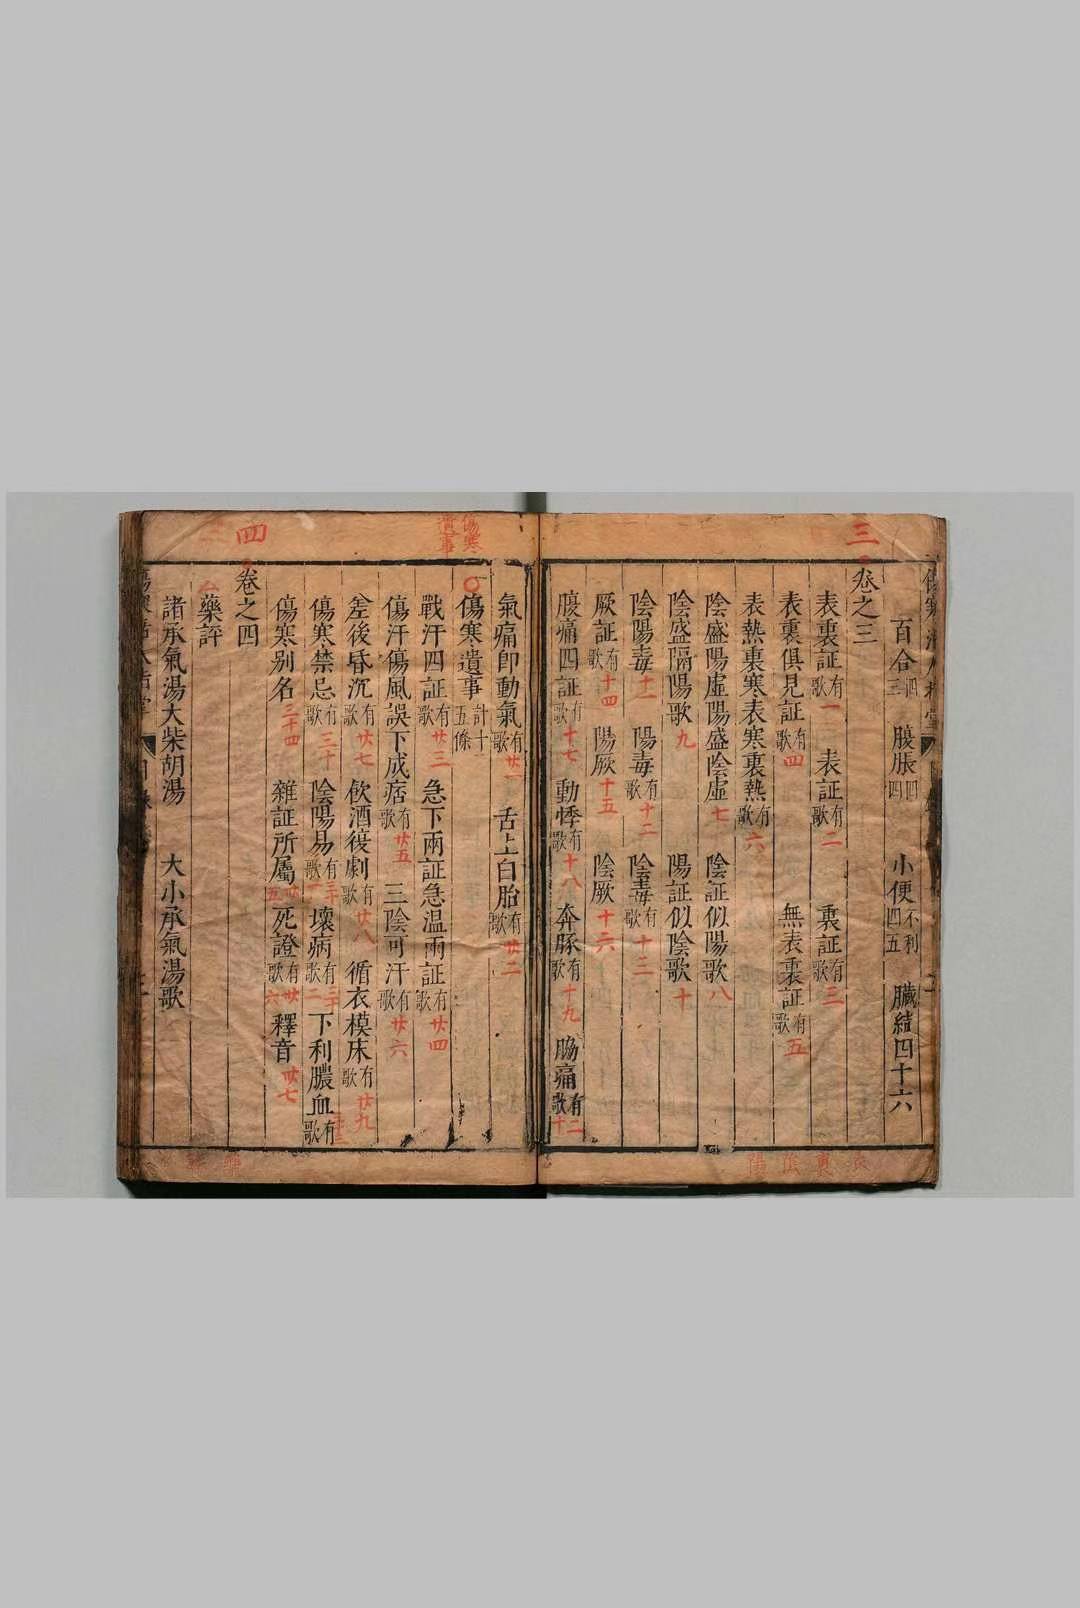 三
百合四三 腹脹四四 小便不利四五 臟結四十六
卷之三
表裏証有歌一 表証有歌二 裏証有歌三
表裏俱見証有歌四 無表裏証有歌五
表熱裏寒表寒裏熱有歌六
陰盛陽虛陽盛陰虛七 陰証似陽歌八
陰盛隔陽歌九 陽証似陰歌十
陰陽毒十一 陽毒有歌十二 陰毒有歌十三
厥証有歌十四 陽厥十五 陰厥十六
腹痛四証有歌十七 動悸有歌十八 奔豚有歌十九 脇痛有歌二十
氣痛即動氣有歌廿一 舌上白胎有歌廿二
傷寒遺事
傷寒遺事計十五條
戰汗四証有歌廿三 急下兩証急温兩証有歌廿四
傷汗傷風誤下成痞有歌廿五 三陰可汗有歌廿六
差後昏沉有歌廿七 飲酒復劇有歌廿八 循衣模床有歌廿九
傷寒禁忌有歌三十 陰陽易有歌三十一 壞病有歌三十二 下利膿血有歌
傷寒別名三十四 雜証所屬卅五 死證有歌卅六 釋音卅七
四
卷之四
藥評
諸承氣湯大柴胡湯 大小承氣湯歌